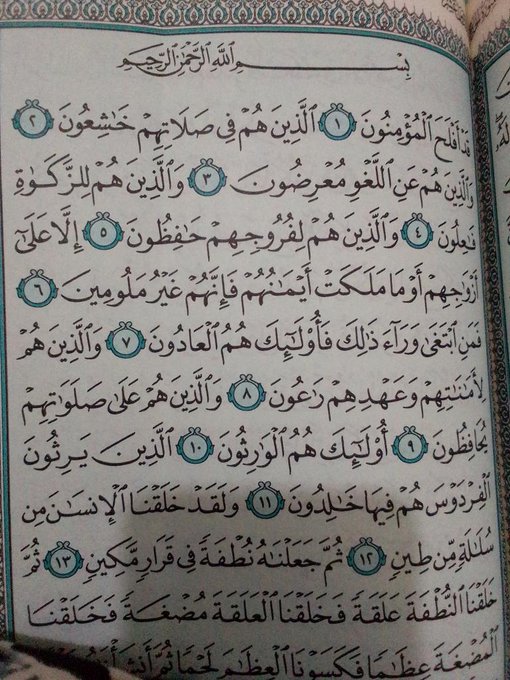 بِسْمِ ٱللَّهِ ٱلرَّحْمَٰنِ ٱلرَّحِيمِ
قَدْ أَفْلَحَ ٱلْمُؤْمِنُونَ ١ ٱلَّذِينَ هُمْ فِى صَلَاتِهِمْ خَٰشِعُونَ ٢
وَٱلَّذِينَ هُمْ عَنِ ٱللَّغْوِ مُعْرِضُونَ ٣ وَٱلَّذِينَ هُمْ لِلزَّكَوٰةِ
فَٰعِلُونَ ٤ وَٱلَّذِينَ هُمْ لِفُرُوجِهِمْ حَٰفِظُونَ ٥ إِلَّا عَلَىٰٓ
أَزْوَٰجِهِمْ أَوْ مَا مَلَكَتْ أَيْمَٰنُهُمْ فَإِنَّهُمْ غَيْرُ مَلُومِينَ ٦
فَمَنِ ٱبْتَغَىٰ وَرَآءَ ذَٰلِكَ فَأُو۟لَٰٓئِكَ هُمُ ٱلْعَادُونَ ٧ وَٱلَّذِينَ هُمْ
لِأَمَٰنَٰتِهِمْ وَعَهْدِهِمْ رَٰعُونَ ٨ وَٱلَّذِينَ هُمْ عَلَىٰ صَلَوَٰتِهِمْ
يُحَافِظُونَ ٩ أُو۟لَٰٓئِكَ هُمُ ٱلْوَٰرِثُونَ ١٠ ٱلَّذِينَ يَرِثُونَ
ٱلْفِرْدَوْسَ هُمْ فِيهَا خَٰلِدُونَ ١١ وَلَقَدْ خَلَقْنَا ٱلْإِنسَٰنَ مِن
سُلَٰلَةٍ مِّن طِينٍ ١٢ ثُمَّ جَعَلْنَٰهُ نُطْفَةً فِى قَرَارٍ مَّكِينٍ ١٣ ثُمَّ
خَلَقْنَا ٱلنُّطْفَةَ عَلَقَةً فَخَلَقْنَا ٱلْعَلَقَةَ مُضْغَةً فَخَلَقْنَا
ٱلْمُضْغَةَ عِظَٰمًا فَكَسَوْنَا ٱلْعِظَٰمَ لَحْمًا ثُمَّ